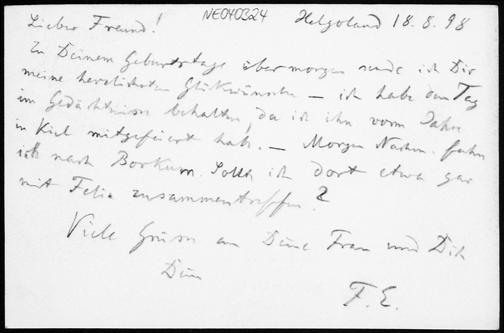 Lieber Freund! NE040324 Helgoland 18.8.98
Zu Deinem Geburtstage übermorgen sende ich Dir
meine herzlichsten Glückwünsche – ich habe den Tag
im Gedächtniss behalten, da ich ihn vorm Jahre
in Kiel mitgefeiert habe. – Morgen Nachm. fahre
ich nach Borkum. Sollte ich dort etwa gar
mit Felix zusammentreffen?
Viele Grüsse an Deine Frau und Dich
Dein
F.E.